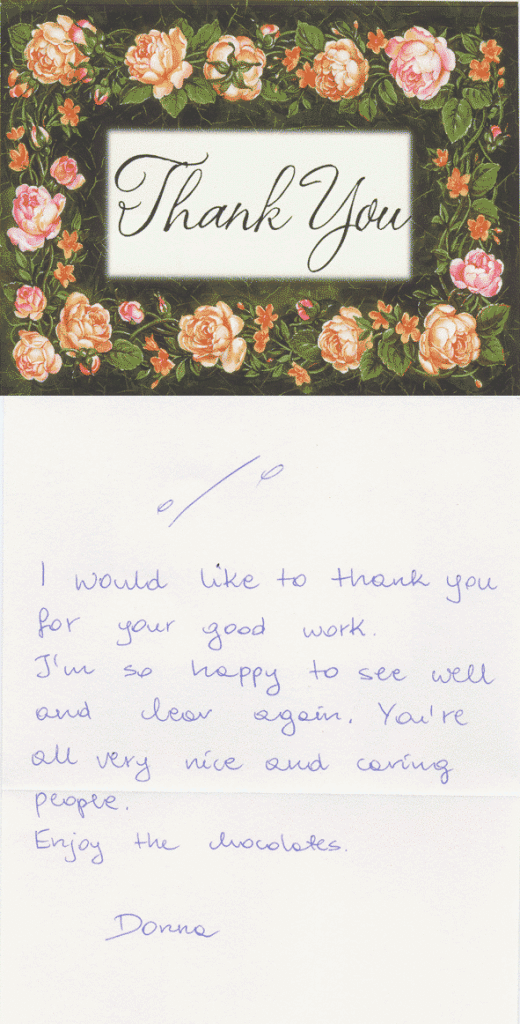 Thank You
%
I would like to thank you
for your good work.
I'm so happy to see well
and clear again. You're
all very nice and caring
people.
Enjoy the chocolates.
Donna